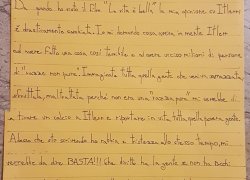 Da quando ho visto il film "La vita è bella" la mia opinione su Hitler
è drasticamente cambiata. Io mi domando cosa aveva in mente Hitler
ad avere fatto una cosa così terribile e avere ucciso milioni di persone
di "razza non pura". Immaginate tutta quella gente che veniva ammazzata
sfruttata, maltrattata perché non era una "razza pura" mi verrebbe di
a tirare un calcio a Hitler e riportare in vita tutta quella povera gente.
Adesso che sto scrivendo ho rabbia e tristezza allo stesso tempo, mi
verrebbe da dire BASTA!!! Che diritto ha la gente e non ha